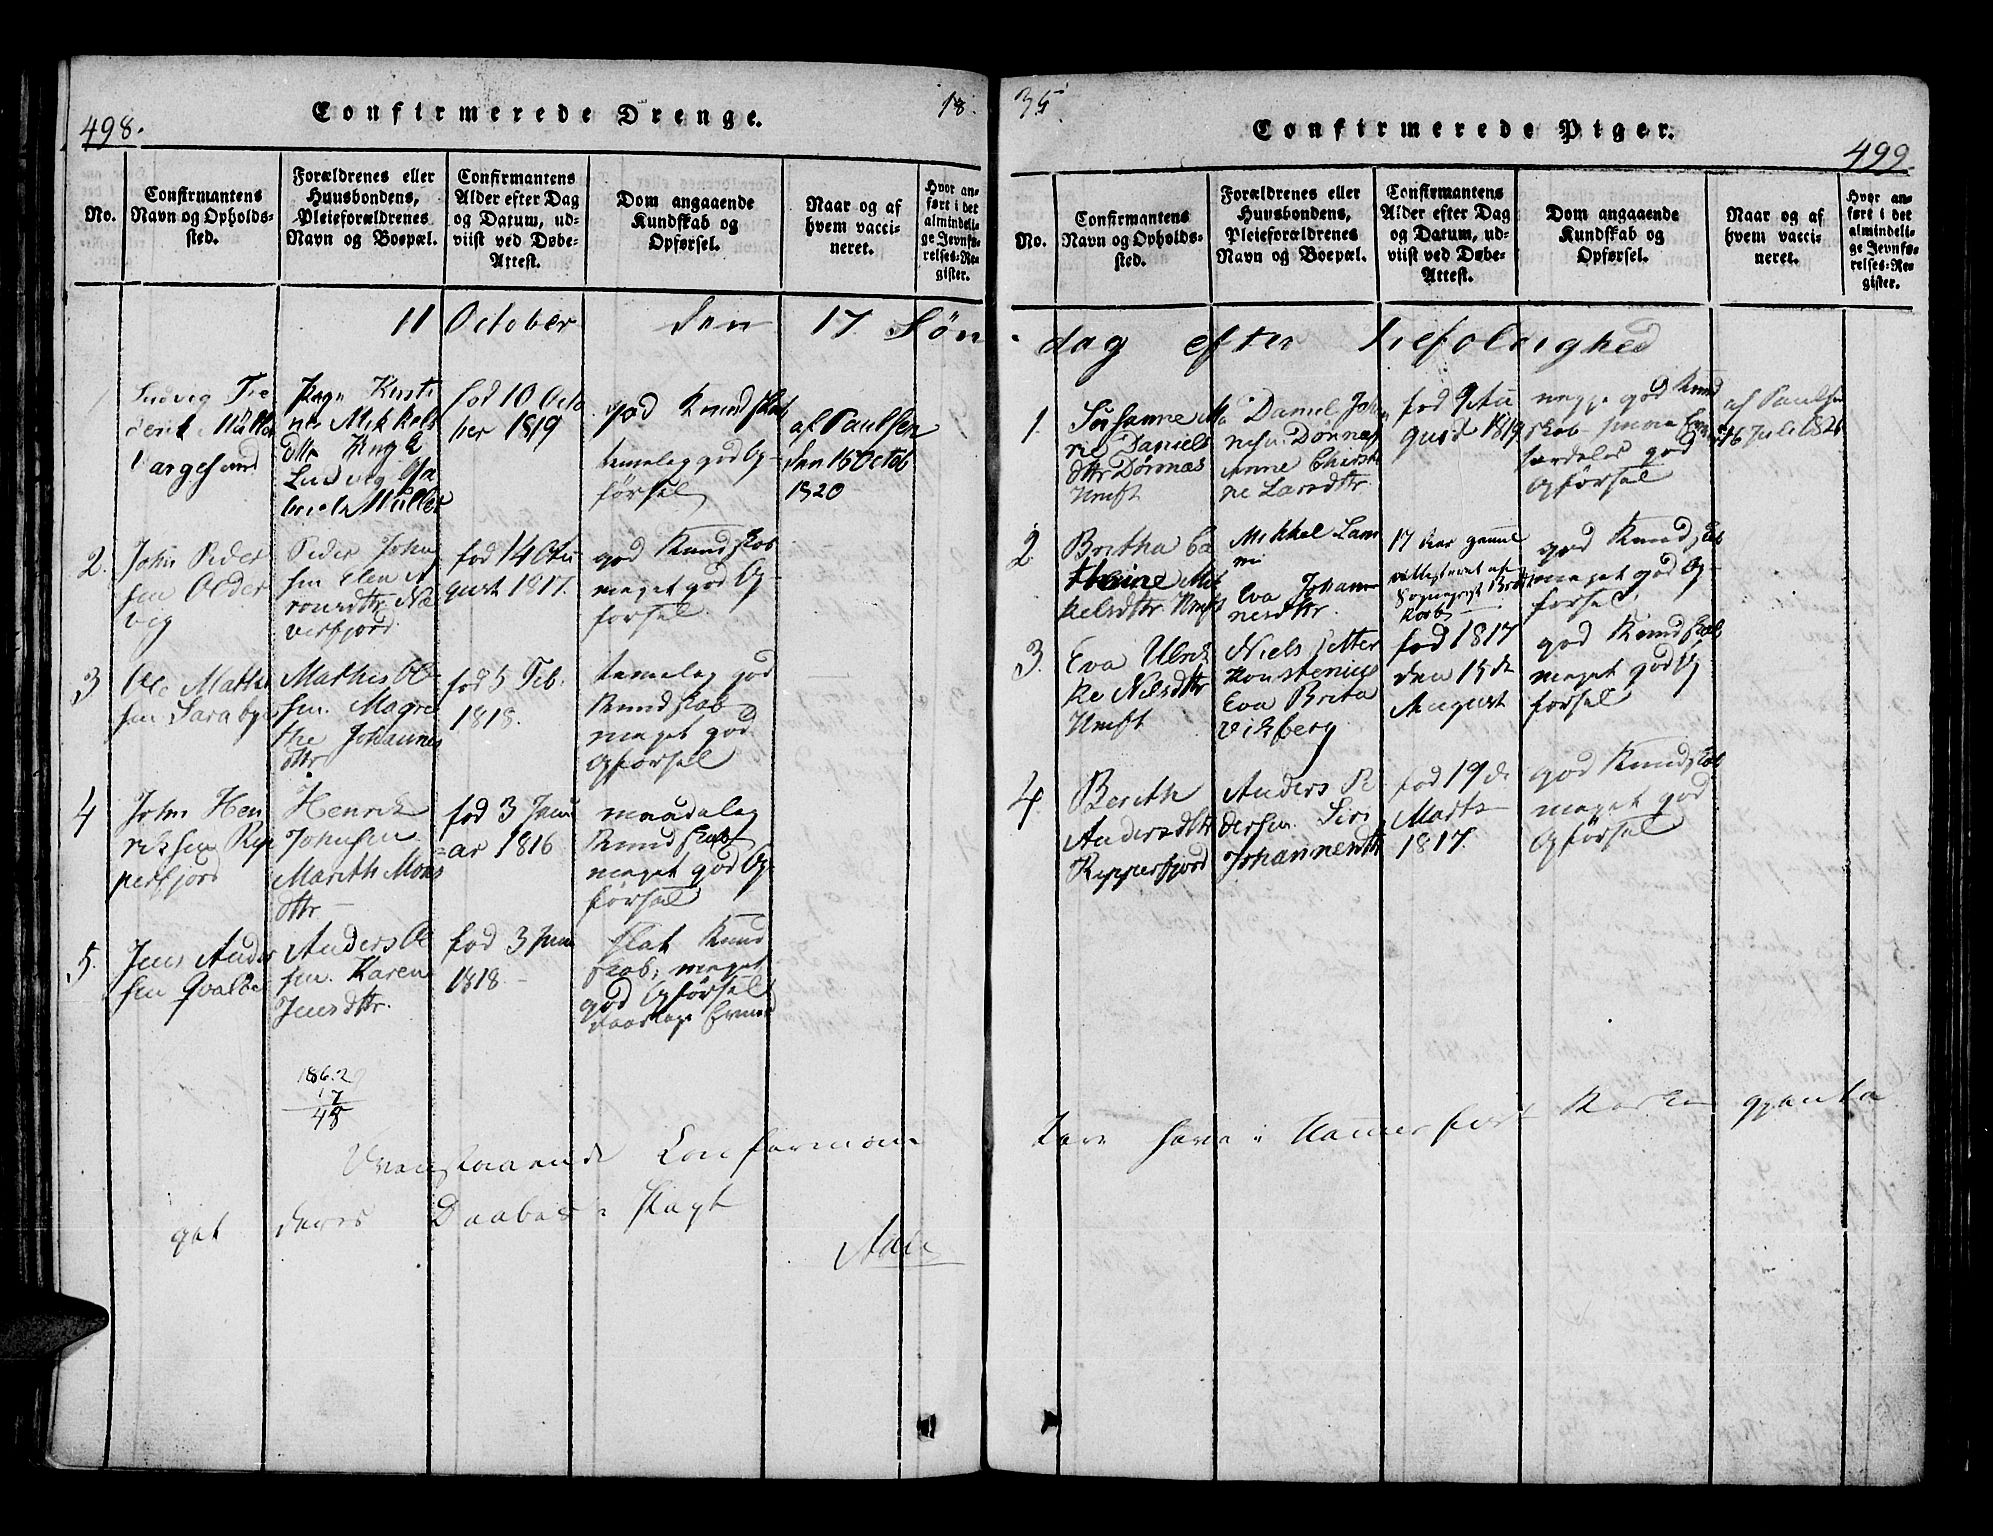 498.
Confirmerede Drenge.
18.
No.
Confirmantens
Navn og Opholds-
sted.
Forældrenes eller
Huusbondens,
Pleieforældrenes
Navn og Boepæl.
Confirmantens
Alder efter Dag
og Datum, ud-
viist ved Døbe-
Attest.
Dom angaaende
Kundskab og
Opførsel.
Naar og af
hvem vacci-
neret.
Hvor an-
ført i det
almindeli-
ge Jevnfø-
relses-Re-
gister.
11 October den 17 Søn
Ludvig
Müller
Mikkels
dttr
Ludvig
Müller
fød 10 Octo
ber 1819
god Kundskab
temelig god Op-
førsel
af Paulsen
den 15 Octob
1820
2.
John Peder
sen Older
vig
Peder John
sen Elen A
ronsdttr Næ
verfjord
fød 14 Au
gust 1817.
god Kundskab
meget god Op-
førsel
3
Ole Mathi
sen Saraby
Mathis Ol
sen. Magre
the Johannes
dttr
fød 5 Feb.
1818.
temelig god
Kundskab
meget god
Opførsel
4
John Hen
riksen Rep
perfjord
Henrik
Johnsen
Marith Mons
dttr
fød 3 Janu
ar 1816
maadelig
Kundskab
meget god Op-
førsel
5.
Jens Ander
sen Qvalbo
Anders Ol
sen. Karen
Jensdttr.
fød 3 Juni
1818.-
slat Kund
skab, meget
god Opførsel
daarlige Evner
186.2
17
45
Ovenstaaende Confirman
get deres Daabs
35
Confirmerede Piger.
499.
No.
Confirmantens
Navn og Opholds-
sted.
Forældrenes eller
Huusbondens,
Pleieforældrenes
Navn og Boepæl.
Confirmantens
Alder efter Dag
og Datum, ud-
viist ved Døbe-
Attest.
Dom angaaende
Kundskab og
Opførsel.
Naar og af
hvem vacci-
neret.
Hvor an-
ført i det
almindeli-
ge Jevnfø-
relses-Re-
gister.
dag efter Trefoldighed
1.
Susanne Ma
rie Daniels
dttr Dønnæs
Hmft
Daniel Joha
nesen Dønnæs
Anne Christi
ne Larsdttr.
fød 9 Au
gust 1819
megge god Kund
skab
særdeles god
Opførsel
af Paulsen
16 Juli 182
2
Britha Ca
thrine Mik
kelsdttr Hmft
Mikkel Lam
mi
Eva Johan
nesdttr.
17 Aar gammel
god Kundskab
meget god Op-
førsel.
3.
Eva Ulrik
ke Nilsdttr
Hmft
Niels Petter
Konstenius
Eva Brita
Vikberg
fød 1817
den 15 de
August
god Kundskab
meget god Op
førsel
4.
Berith
Andersdttr
Repperfjord
Anders Pe
dersen. Siri
Johannesdttr
fød 19 de
Marts
1817.
god Kundskab
meget god
Opførsel
have i Hammerfest Kirke gjenta